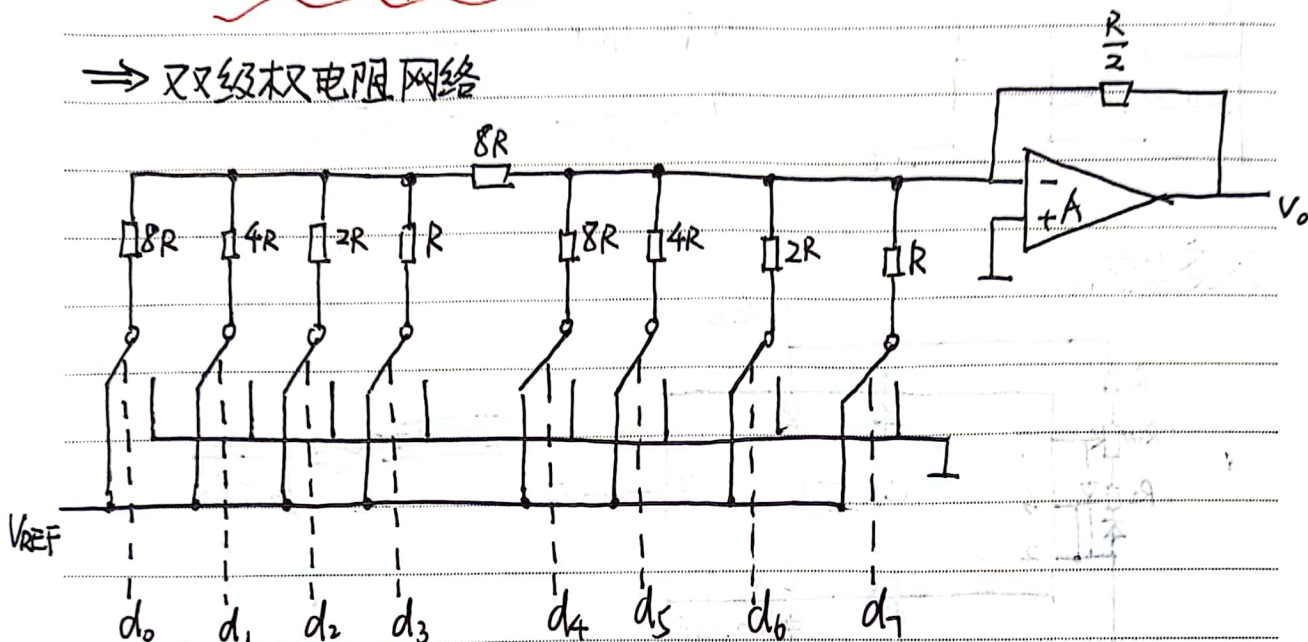 ⇒ 双级权电阻网络
R/2
8R
8R 4R 2R R 8R 4R 2R R
- + A
V₀
VREF
d₀ d₁ d₂ d₃ d₄ d₅ d₆ d₇